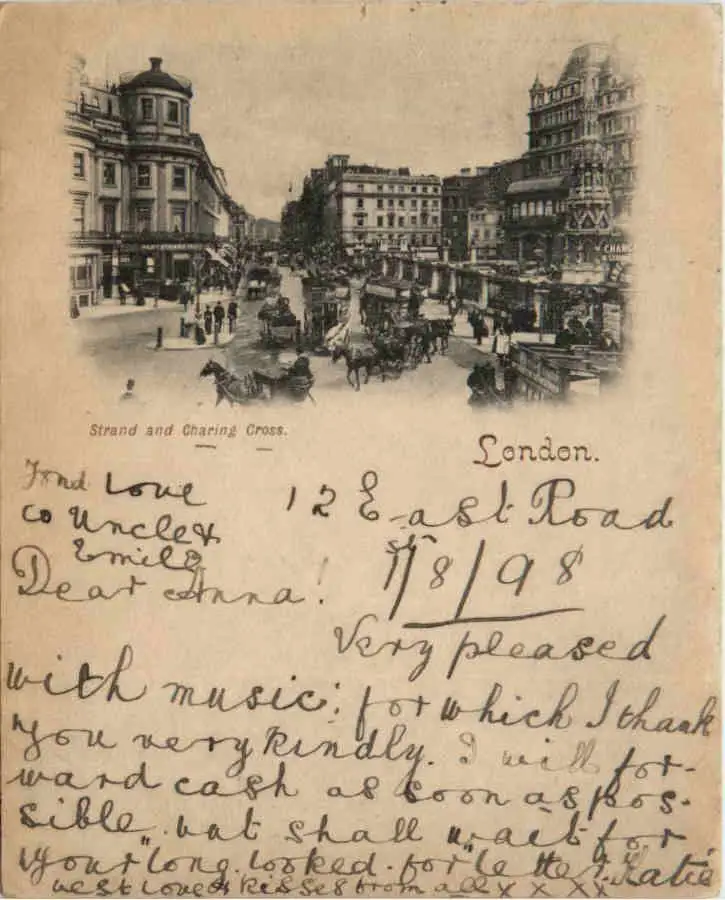 Strand and Charing Cross.
London.
Fond Love
to Uncle &
Emile
12 East Road
1st/8/98
Dear Anna!
Very pleased
with music: for which I thank
you very kindly. I will for-
ward cash as soon as pos-
sible, but shall wait for
your long. looked. for letter. Katie
best love & kisses from all x x x x